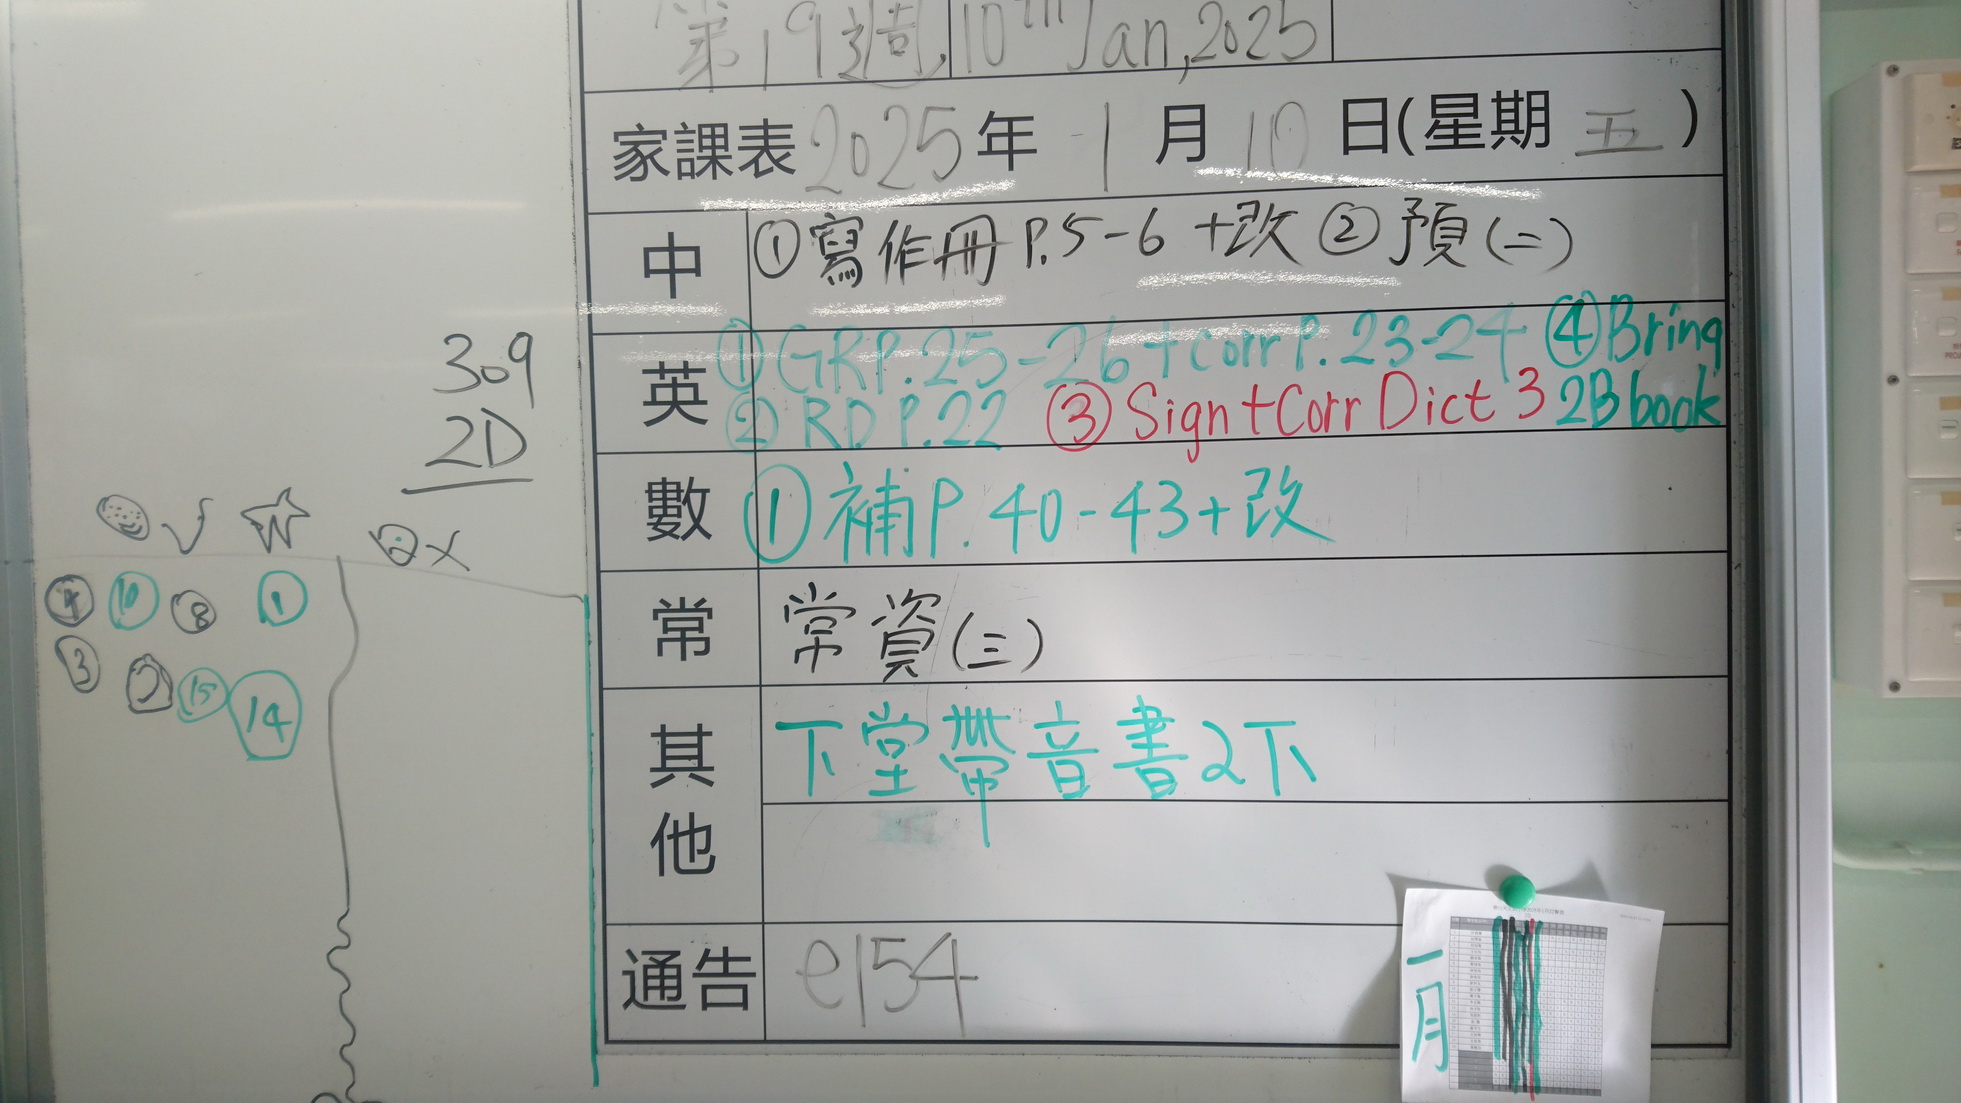 第19週, 10th Jan, 2025
家課表 2025 年 1 月 10 日(星期 五 )
中 ①寫作冊 P.5-6 +改 ②預(二)
英 ①GRP.25-26+corrP.23-24 ④Bring
②RD P.22 ③Sign+Corr Dict 3 2B book
數 ①補P.40-43+改
常 常資(三)
其他 下堂帶音書2下
通告 e154
309
2D
②×
④ ⑩ ⑧ ①
③ ⑮ ⑭
一月